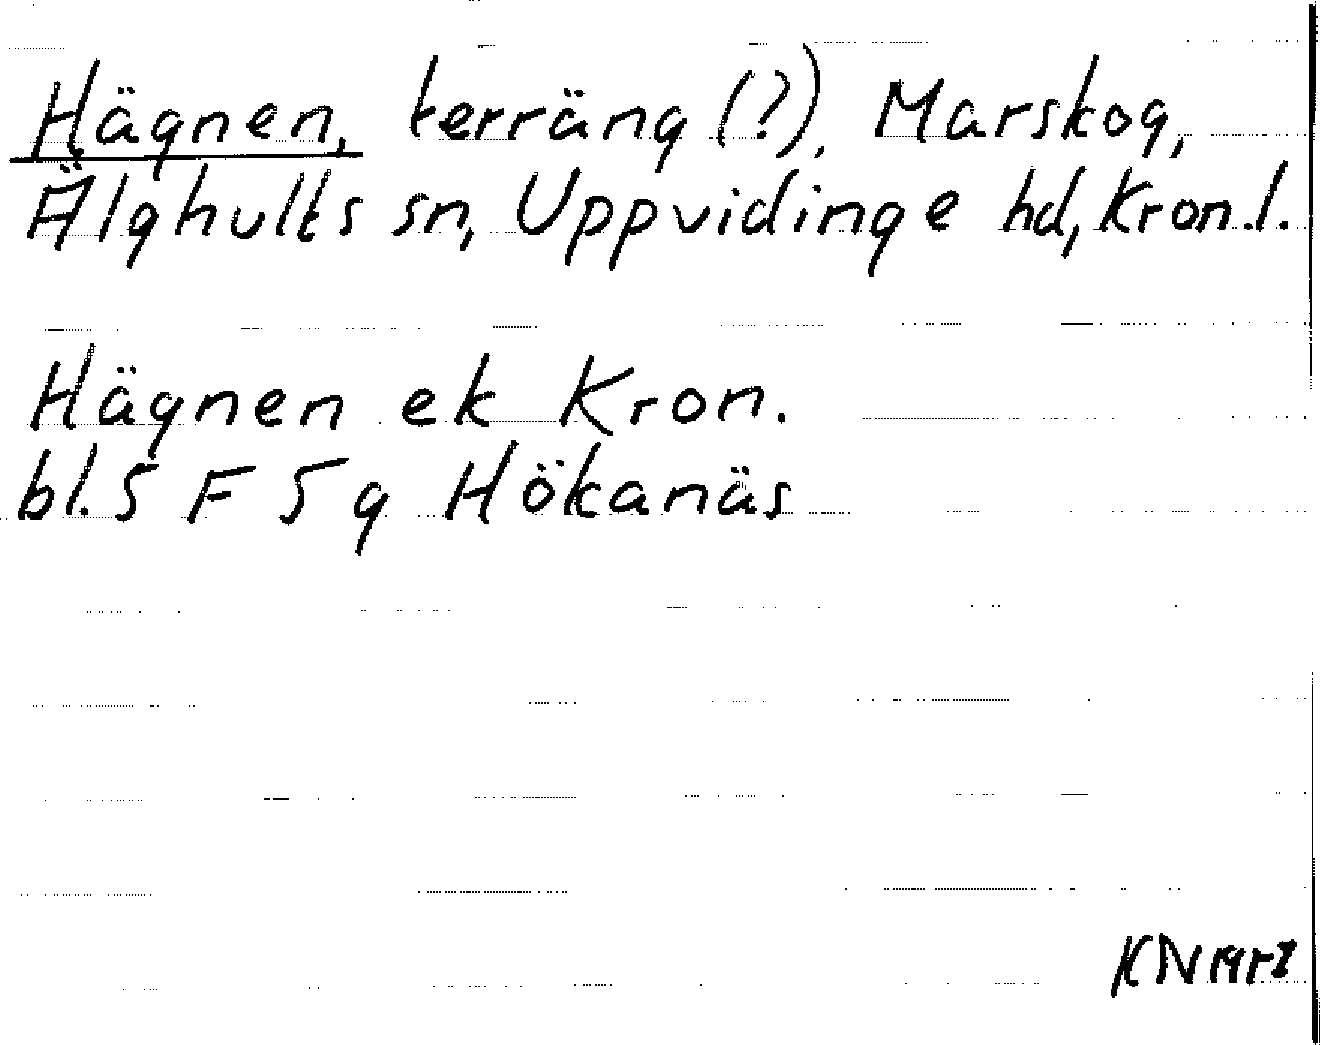 Hägnen, terräng (?), Marskog,
Älghults sn, Uppvidinge hd, Kron.l.
Hägnen ek Kron.
bl. 5 F 5 g Hökanäs
KN